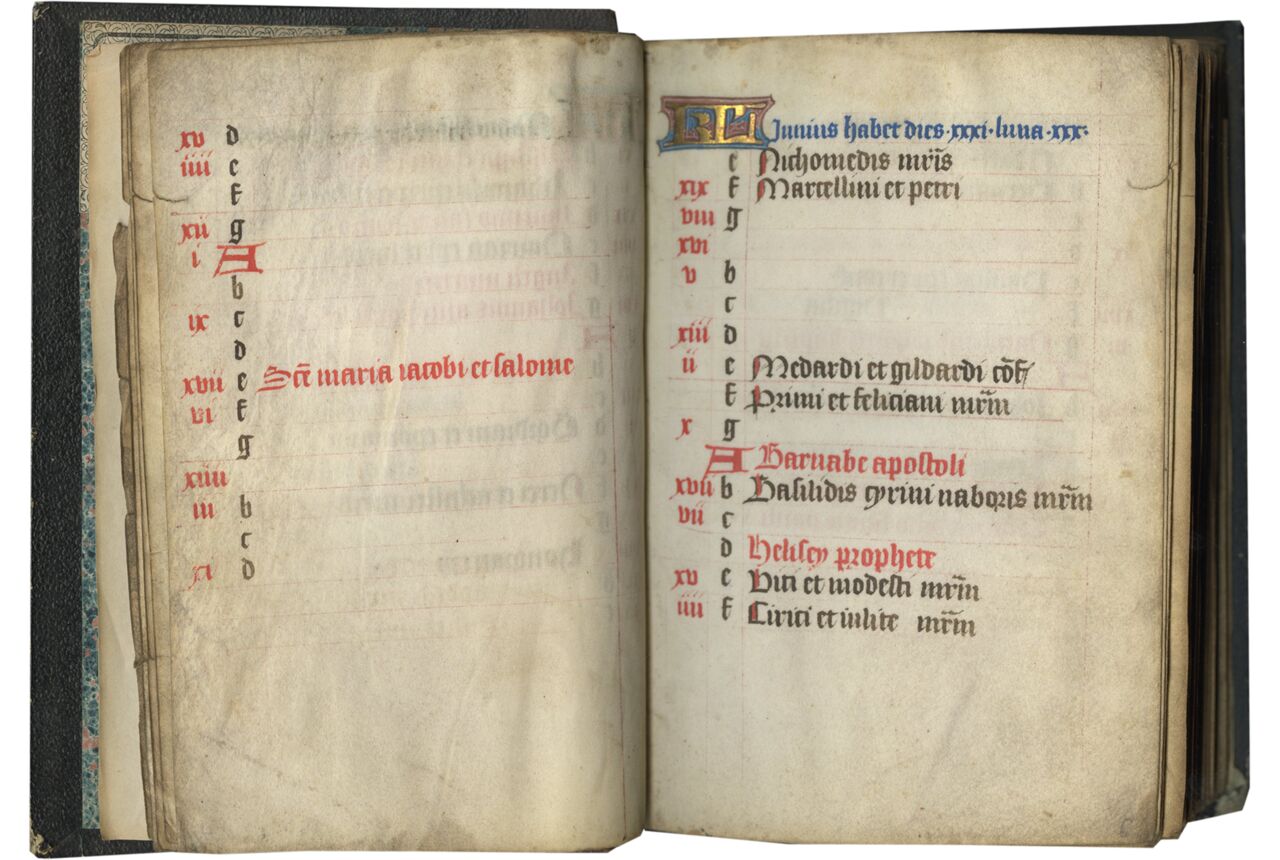 xv d
iiii e
f
xii g
i A
b
ix c
d
xvii e Sce maria iacobi et salome
vi f
g
xiiii
iii b
c
xi d
KL Iunius habet dies·xxxi·luna·xxx·
e Nichomedis mris
xix f Marcellini et petri
viii g
xvi
v b
c
xiii d
ii e Medardi et gildardi cof
f Primi et feliciani mrm
x g
A Barnabe apostoli
xviii b Basilidis cyrini naboris mrm
vii c
d Helisey prophete
xv e Viti et modesti mrm
iiii f Cirici et iulite mrm